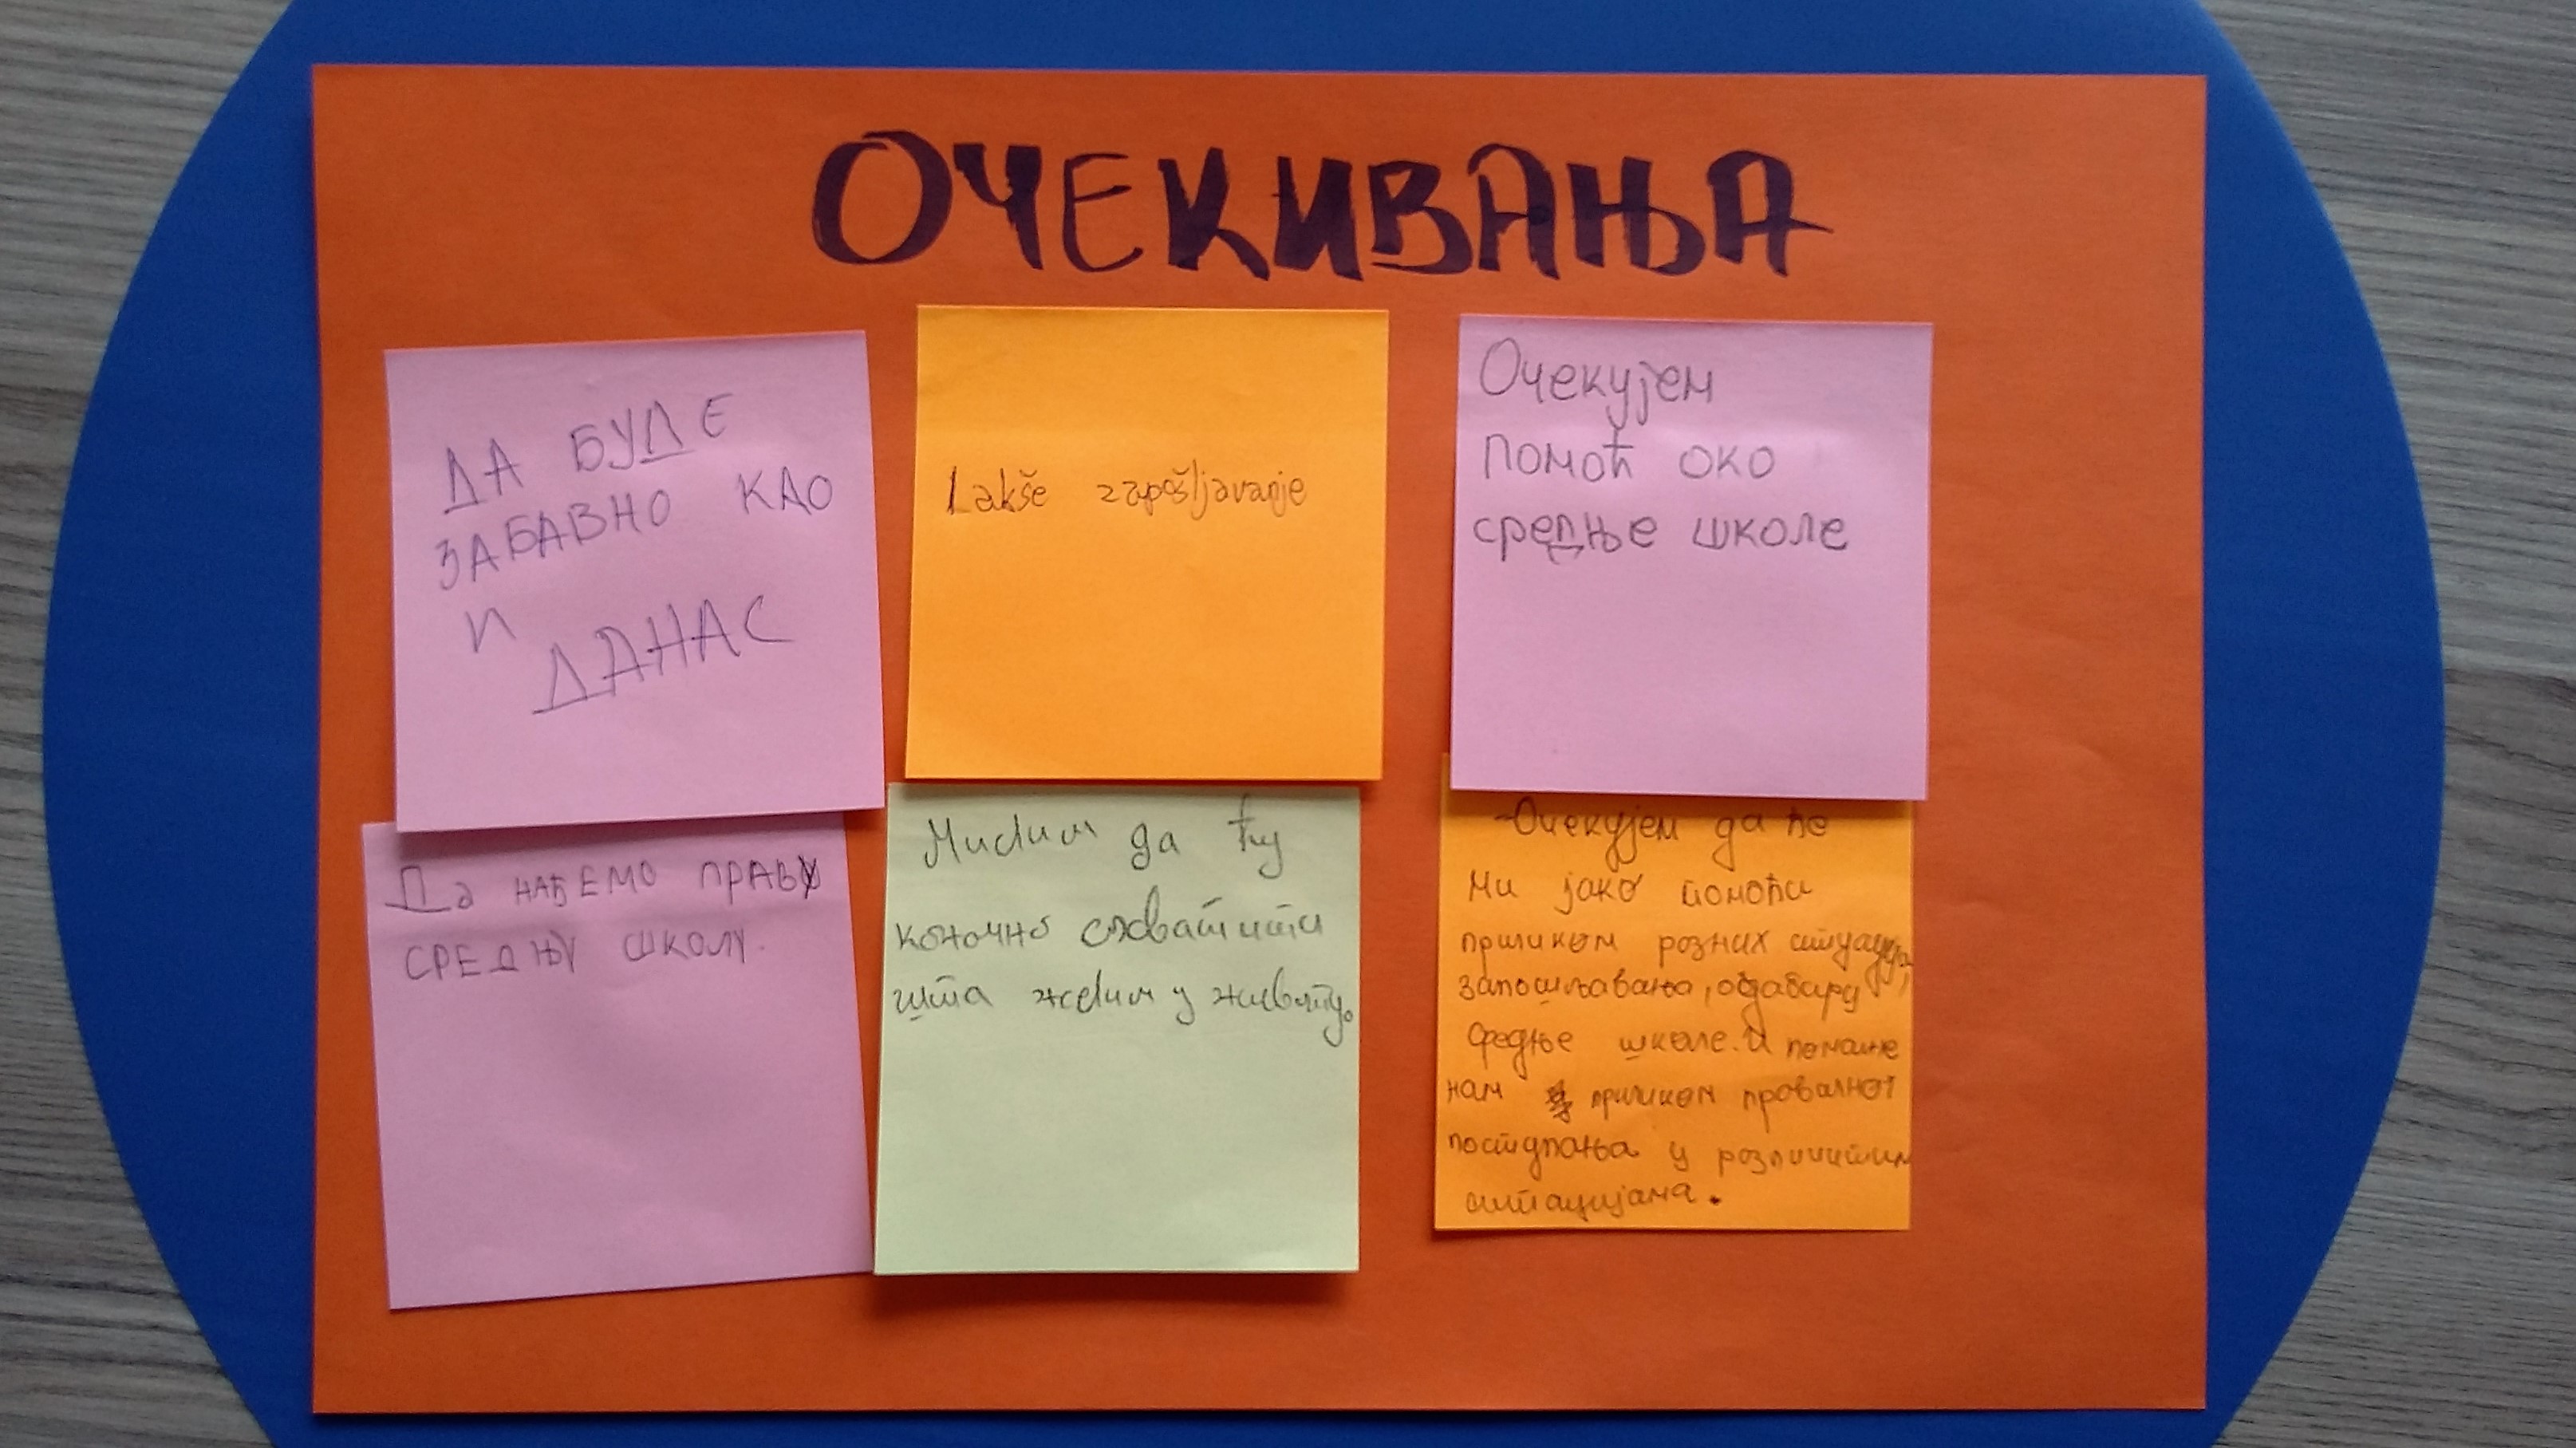 ОЧЕКИВАЊА
ДА БУДЕ
ЗАБАВНО КАО
И
ДАНАС
Lakše zapošljavanje
Очекујем
помоћ око
средње школе
Да НАЂЕМО ПРАВУ
СРЕДЊУ ШКОЛУ.
Мислим да ћу
коначно схватити
шта желим у животу.
-Очекујем да ће
ми јако помоћи
приликом разних ситуација,
запошљавања, одабиру
средње школе. И помаже
нам приликом правилног
поступања у различитим
ситацијама.